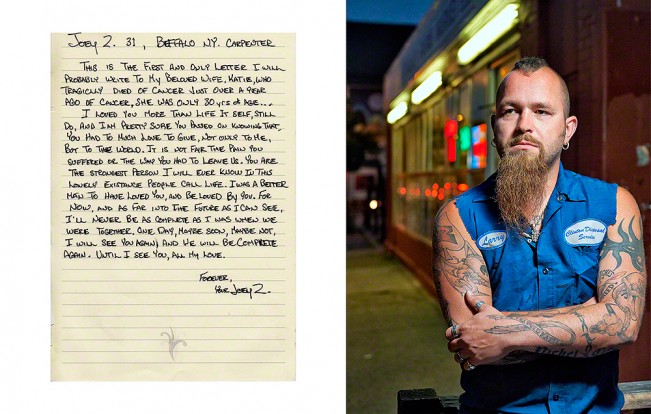 Joey Z. 31, Buffalo NY. Carpenter
This is the first and only letter I will
probably write to my beloved wife, Katie, who
tragically died of cancer just over a year
ago of cancer, she was only 30 yrs of age...
I loved you more than life it self, still
do, and I'm pretty sure you passed on knowing that.
You had to much love to give, not only to me,
but to the world. It is not fair the pain you
suffered or the way you had to leave us. You are
the strongest person I will ever know in this
lonely existance people call life. I was a better
man to have loved you, and be loved by you. For
now, and as far into the future as I can see,
I'll never be as complete as I was when we
were together. One day, maybe soon, maybe not,
I will see you again, and we will be complete
again. Until I see you, all my love.
Forever,
Your Joey Z.
Larry
Clinton Disposal
Service